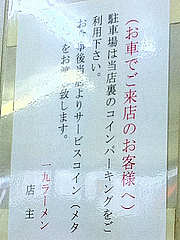 (お車でご来店のお客様へ)
駐車場は当店裏のコインパーキングをご
利用下さい。
お 事後当店よりサービスコイン(メタ
をお 致します。
一九ラーメン
店主